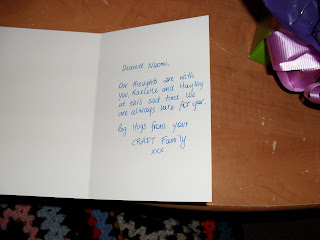 Dearest Naomi,
Our thoughts are with
you, Maxine and Hayley
at this sad time. We
are always here for you.
Big Hugs from your
CRAFT Family
xxx